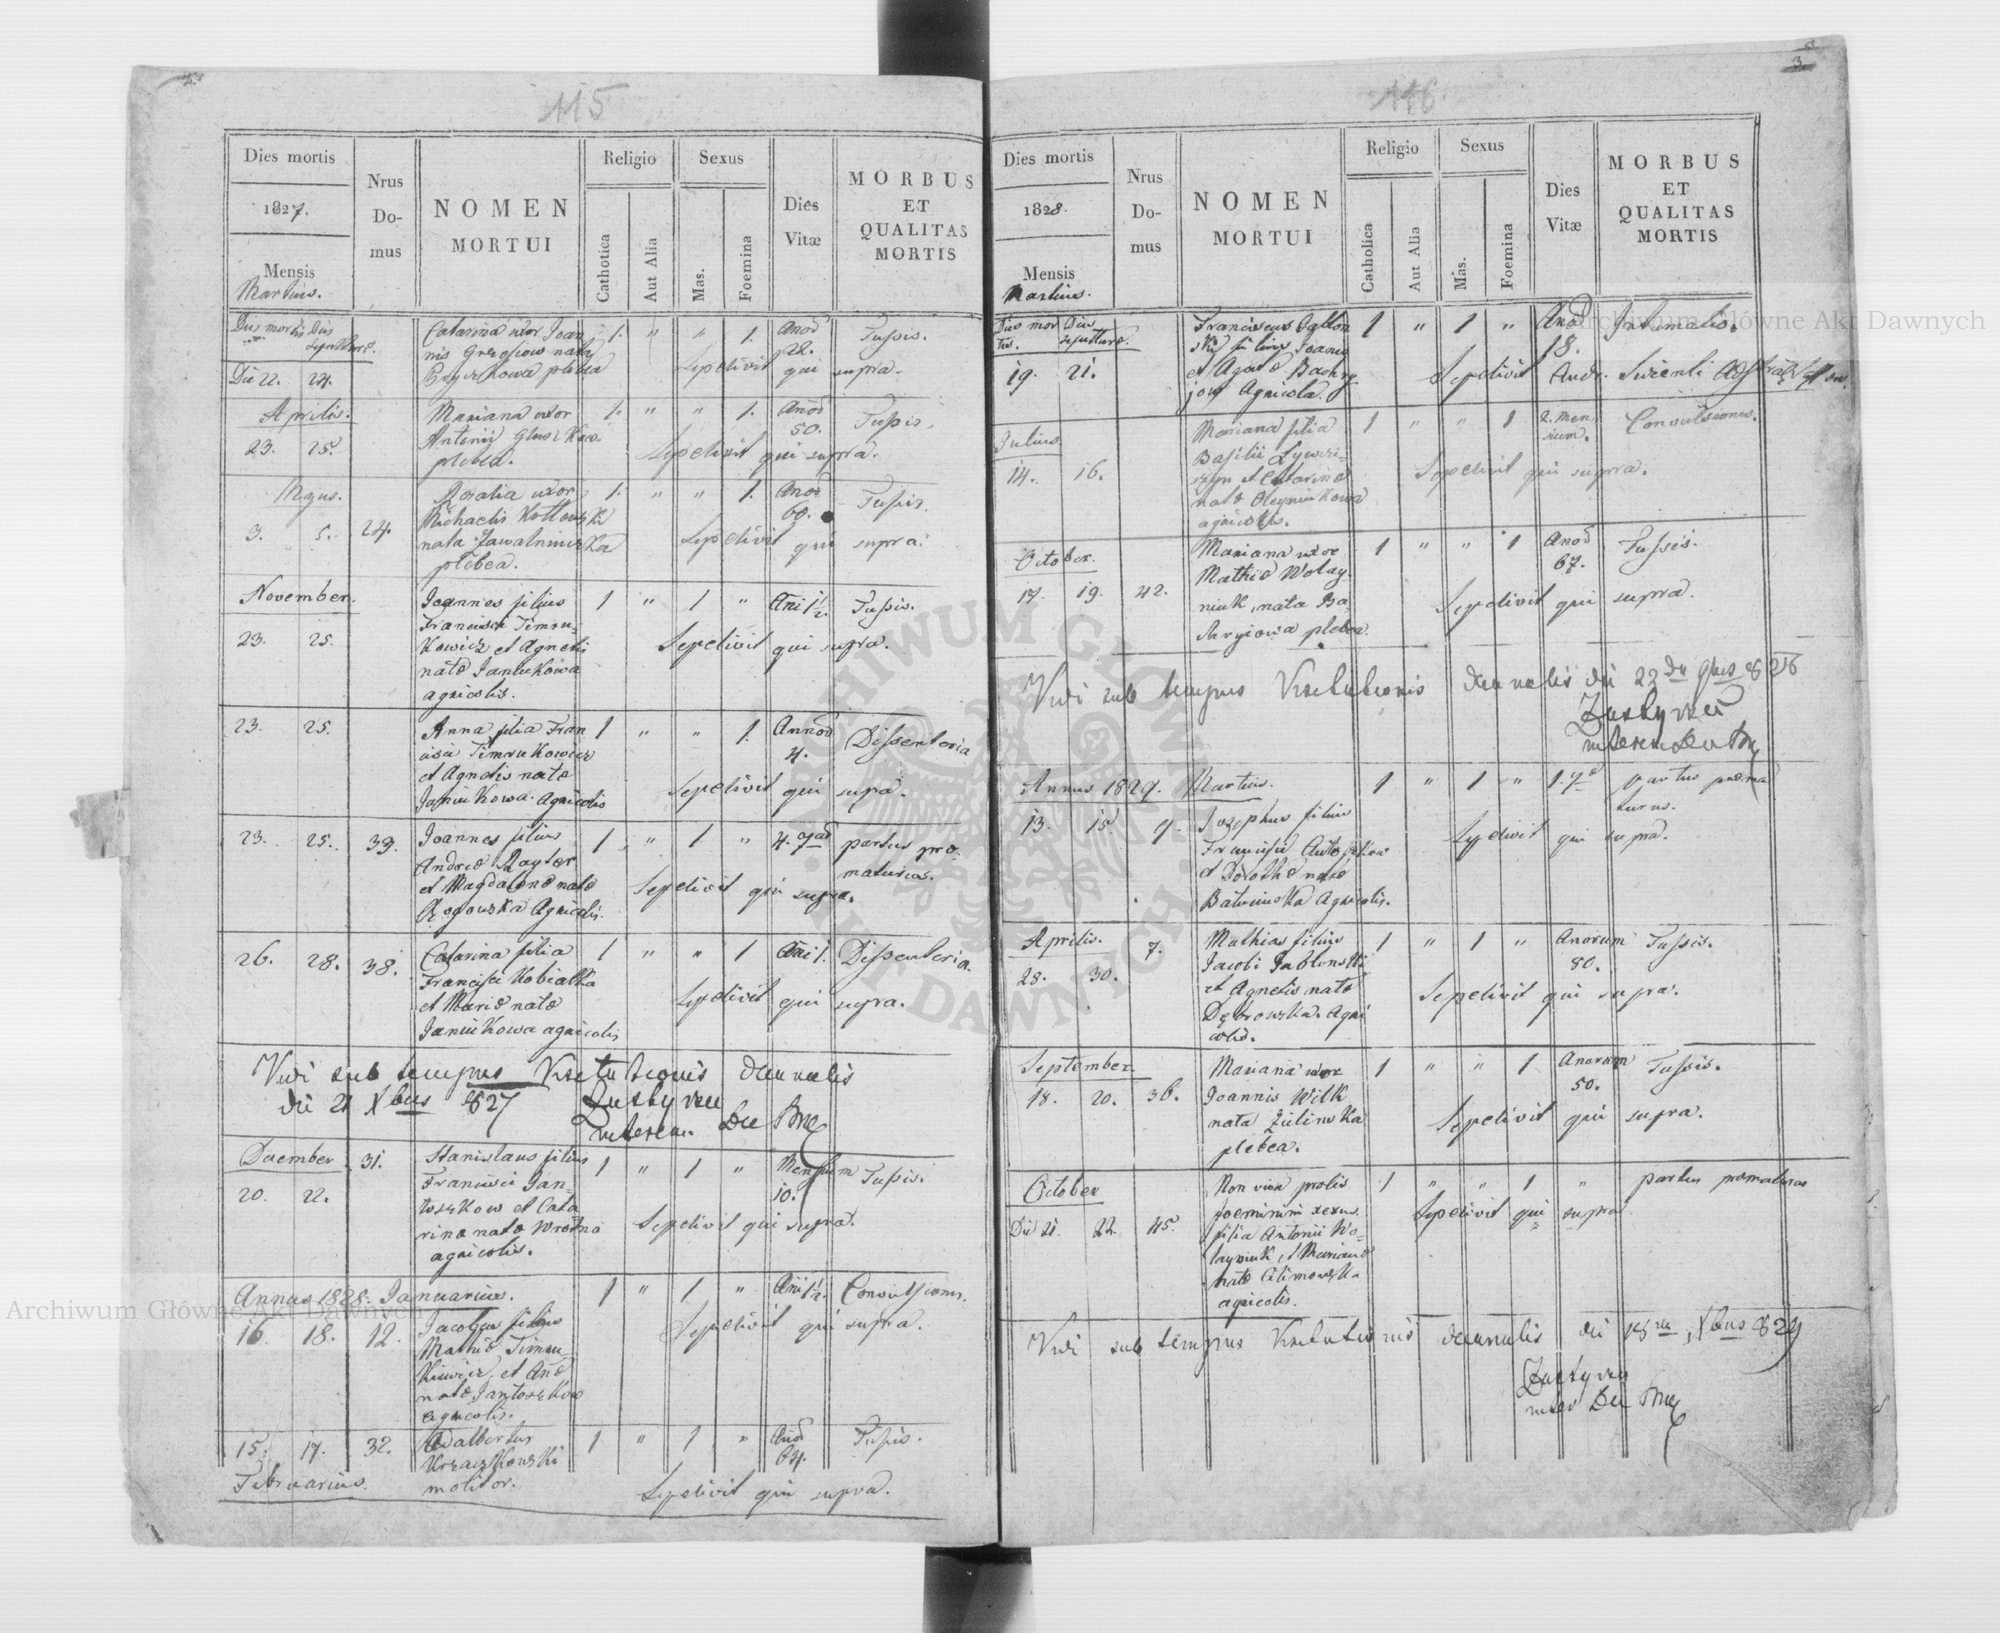 115
Dies mortis
1827.
Mensis
Martius.
Nrus
Do-
mus
NOMEN
MORTUI
Religio
Cathotica
Aut Alia
Sexus
Mas.
Foemina
Dies
Vitæ
MORBUS
ET
QUALITAS
MORTIS
Dies mortis Dies
Sepulturæ.
Die 22. 24.
Catarina uxor Joan
nis
plebea
1. " " 1.
22.
Tussis.
Sepelivit qui supra.
Aprilis.
23. 25.
Mariana uxor
Antonii
plebea.
1. " " 1.
50.
Tussis.
Sepelivit qui supra.
Majus.
3. 5. 24.
Rosalia uxor
Michaelis
nata
plebea.
1. " " 1.
60.
Tussis.
Sepelivit qui supra.
November.
23. 25.
Joannes filius
Francisci Timru-
kowicz et Agnetis
natæ Janiukowa
agricolis.
1 " 1 "
Ani 1½.
Tussis.
Sepelivit qui supra.
23. 25.
Anna filia Fran
cisci Timrukowicz
et Agnetis natæ
Janiukowa. Agricolis
1 " " 1.
4.
Dissenteria
Sepelivit qui supra.
23. 25. 39.
Joannes filius
Andreæ Rayter
et Magdalenæ natæ
Rogowska Agricolis.
1 " 1 "
partus pre-
maturus.
Sepelivit qui supra.
26. 28. 38.
Catarina filia
Francisci Kobialka
et Mariæ natæ
Janiukowa agricolis
1 " " 1
Ani 1.
Dissenteria.
Sepelivit qui supra.
Vidi sub tempus Visitationis Decanalis
die 21 Xbris 827
December 31.
20. 22.
Stanislaus filius
Francisci Jan-
toszkow et Cata
rinæ natæ Wrotna
agricolis.
1 " 1 "
Mensium
10.
Tussis.
Sepelivit qui supra.
Annus 1828. Januarius.
16. 18. 12.
Jacobus filius
Mathiæ Timru
kiewicz, et Anæ
natæ Jantoszkow
agricolis.
1 " 1 "
Ani 1½.
Convulsiones.
Sepelivit qui supra.
15. 17. 32.
Februarius.
Adalbertus
Krzaczkowski
molitor.
1 " 1 "
64.
Tussis.
Sepelivit qui supra.
116.
3
Dies mortis
1828.
Mensis
Martius.
Nrus
Do-
mus
NOMEN
MORTUI
Religio
Catholica
Aut Alia
Sexus
Mas.
Foemina
Dies
Vitæ
MORBUS
ET
QUALITAS
MORTIS
Dies mor Dies
tis. sepulturæ.
19. 21.
Franciscus Jablon
ski filius Joanis
et Agatæ
Agricola.
1 " 1 "
18.
Sepelivit
Julius.
14. 16.
Mariana filia
Basilii
et Catarinæ
natæ Oleyniukowa
agricolis.
1 " " 1
2. men
sium.
Convulsiones.
Sepelivit qui supra.
October.
17. 19. 42.
Mariana uxor
Mathiæ Wolay
niuk, nata Ba-
plebea.
1 " " 1
67.
Tussis.
Sepelivit qui supra.
Vidi sub tempus Visitationis Decanalis die 22 828
Annus 1829. Martius.
13. 15. 7.
Josephus filius
Francisci
et Dorothæ natæ
Agricolis.
1 " 1 "
partus prema
turus.
Sepelivit qui supra.
Aprilis.
28. 30. 7.
Mathias filius
Jacobi Jablonski
et Agnetis natæ
Dębrowska. Agri
colis.
1 " 1 "
Anorum
80.
Tussis.
Sepelivit qui supra.
September.
18. 20. 36.
Mariana uxor
Joannis Wilk
nata Zielinska
plebea.
1 " " 1
Anorum
50.
Tussis.
Sepelivit qui supra.
October
Die 21. 22. 45.
Non viva prolis
foeminini sexus
filia Antonii Wo-
layniuk, et Marianæ
natæ Klimowska
agricolis.
1 " " 1 "
partus prematurus
Sepelivit qui supra.
Vidi sub tempus Visitationis Decanalis die Xbris 829
Archiwum Główne Akt Dawnych
Archiwum Główne Akt Dawnych
ARCHIWUM GŁÓWNE AKT DAWNYCH